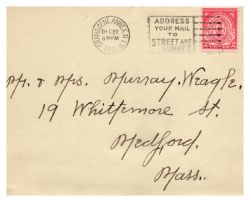 DEC 22
6 PM
ADDRESS
YOUR MAIL
TO
STREET AND
NUMBER
Mr. & Mrs. Murray Weagle.
19 Whittemore St.
Medford.
Mass.